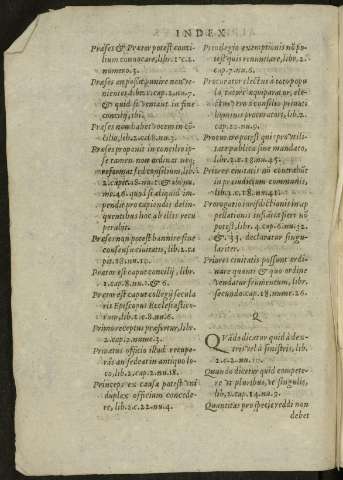 INDEX
Præses & Prætor potest conci-
lium conuocare, libr. 2. c. 2.
numero. 3.
Præses an possit punire non ve-
nientes, lib. 2. cap. 2. nu. 7.
& quid si veniant in fine
concilij, ibi.
Præses non habet votem in cō-
cilio, lib. 2. ca. 8. nu. 7.
Præses proponit in concilio ip-
se tamen non ordinat neq;
reformat sed consilium, lib.
2. capit. 18. nu. 1. & vbi nu-
me. 46. quod si aliquid im-
pendit pro capiendis delin-
quentibus hoc ab illis recu
perabit.
Præses non potest bannire sine
consensu ciuitatis, lib. 2. ca
pit. 18. nu. 19.
Prætor est caput concilij, libr.
2. cap. 8. nu. 1. & 6.
Prætor est caput collegij secula
ris Episcopus Ecclesiastico-
rum, lib. 2. c. 8. nu. 6.
Primo receptus præfertur, libr.
2. cap. 12. nume. 3.
Priuatus officio illud recupe-
rās an sedeat in antiquo lo
co, lib. 2. cap. 2. nu. 18.
Princeps ex causa potest vni
duplex officium concede-
re, lib. 2. c. 22. nu. 4.
Priuilegio exemptionis nō po-
test quis renuntiare, libr. 2.
cap. 7. nu. 6.
Procurator electus à toto popu
lo, tutori æquiparatur, ele-
ctus vero à consilio priuati
hominis procuratori, lib. 2.
cap. 2. nu. 9.
Procurare potest quis pro vtili-
tate publica sine mandato,
lib. 2. c. 18. nu. 45.
Priores ciuitatis nō contrahūt
in præiudicium communis,
lib. 3. c. 18. nu. 41.
Prorogatio iurisdictionis in ap
pellationis instātia fieri nō
potest, libr. 4. cap. 6. nu. 32.
& 33. declaratur singu-
lariter.
Priores ciuitatis possunt ordi-
nare quanti & quo ordine
vendatur frumentum, libr.
secundo. cap. 18. nume. 26.
Q
QVādo dicatur quid à dex-
tris vel à sinistris, lib.
2. c. 2. nu. 12.
Quando dicatur quid compete-
re vt pluribus, vt singulis,
lib. 2. cap. 14. nu. 9.
Quantitas pro specie reddi non
debet